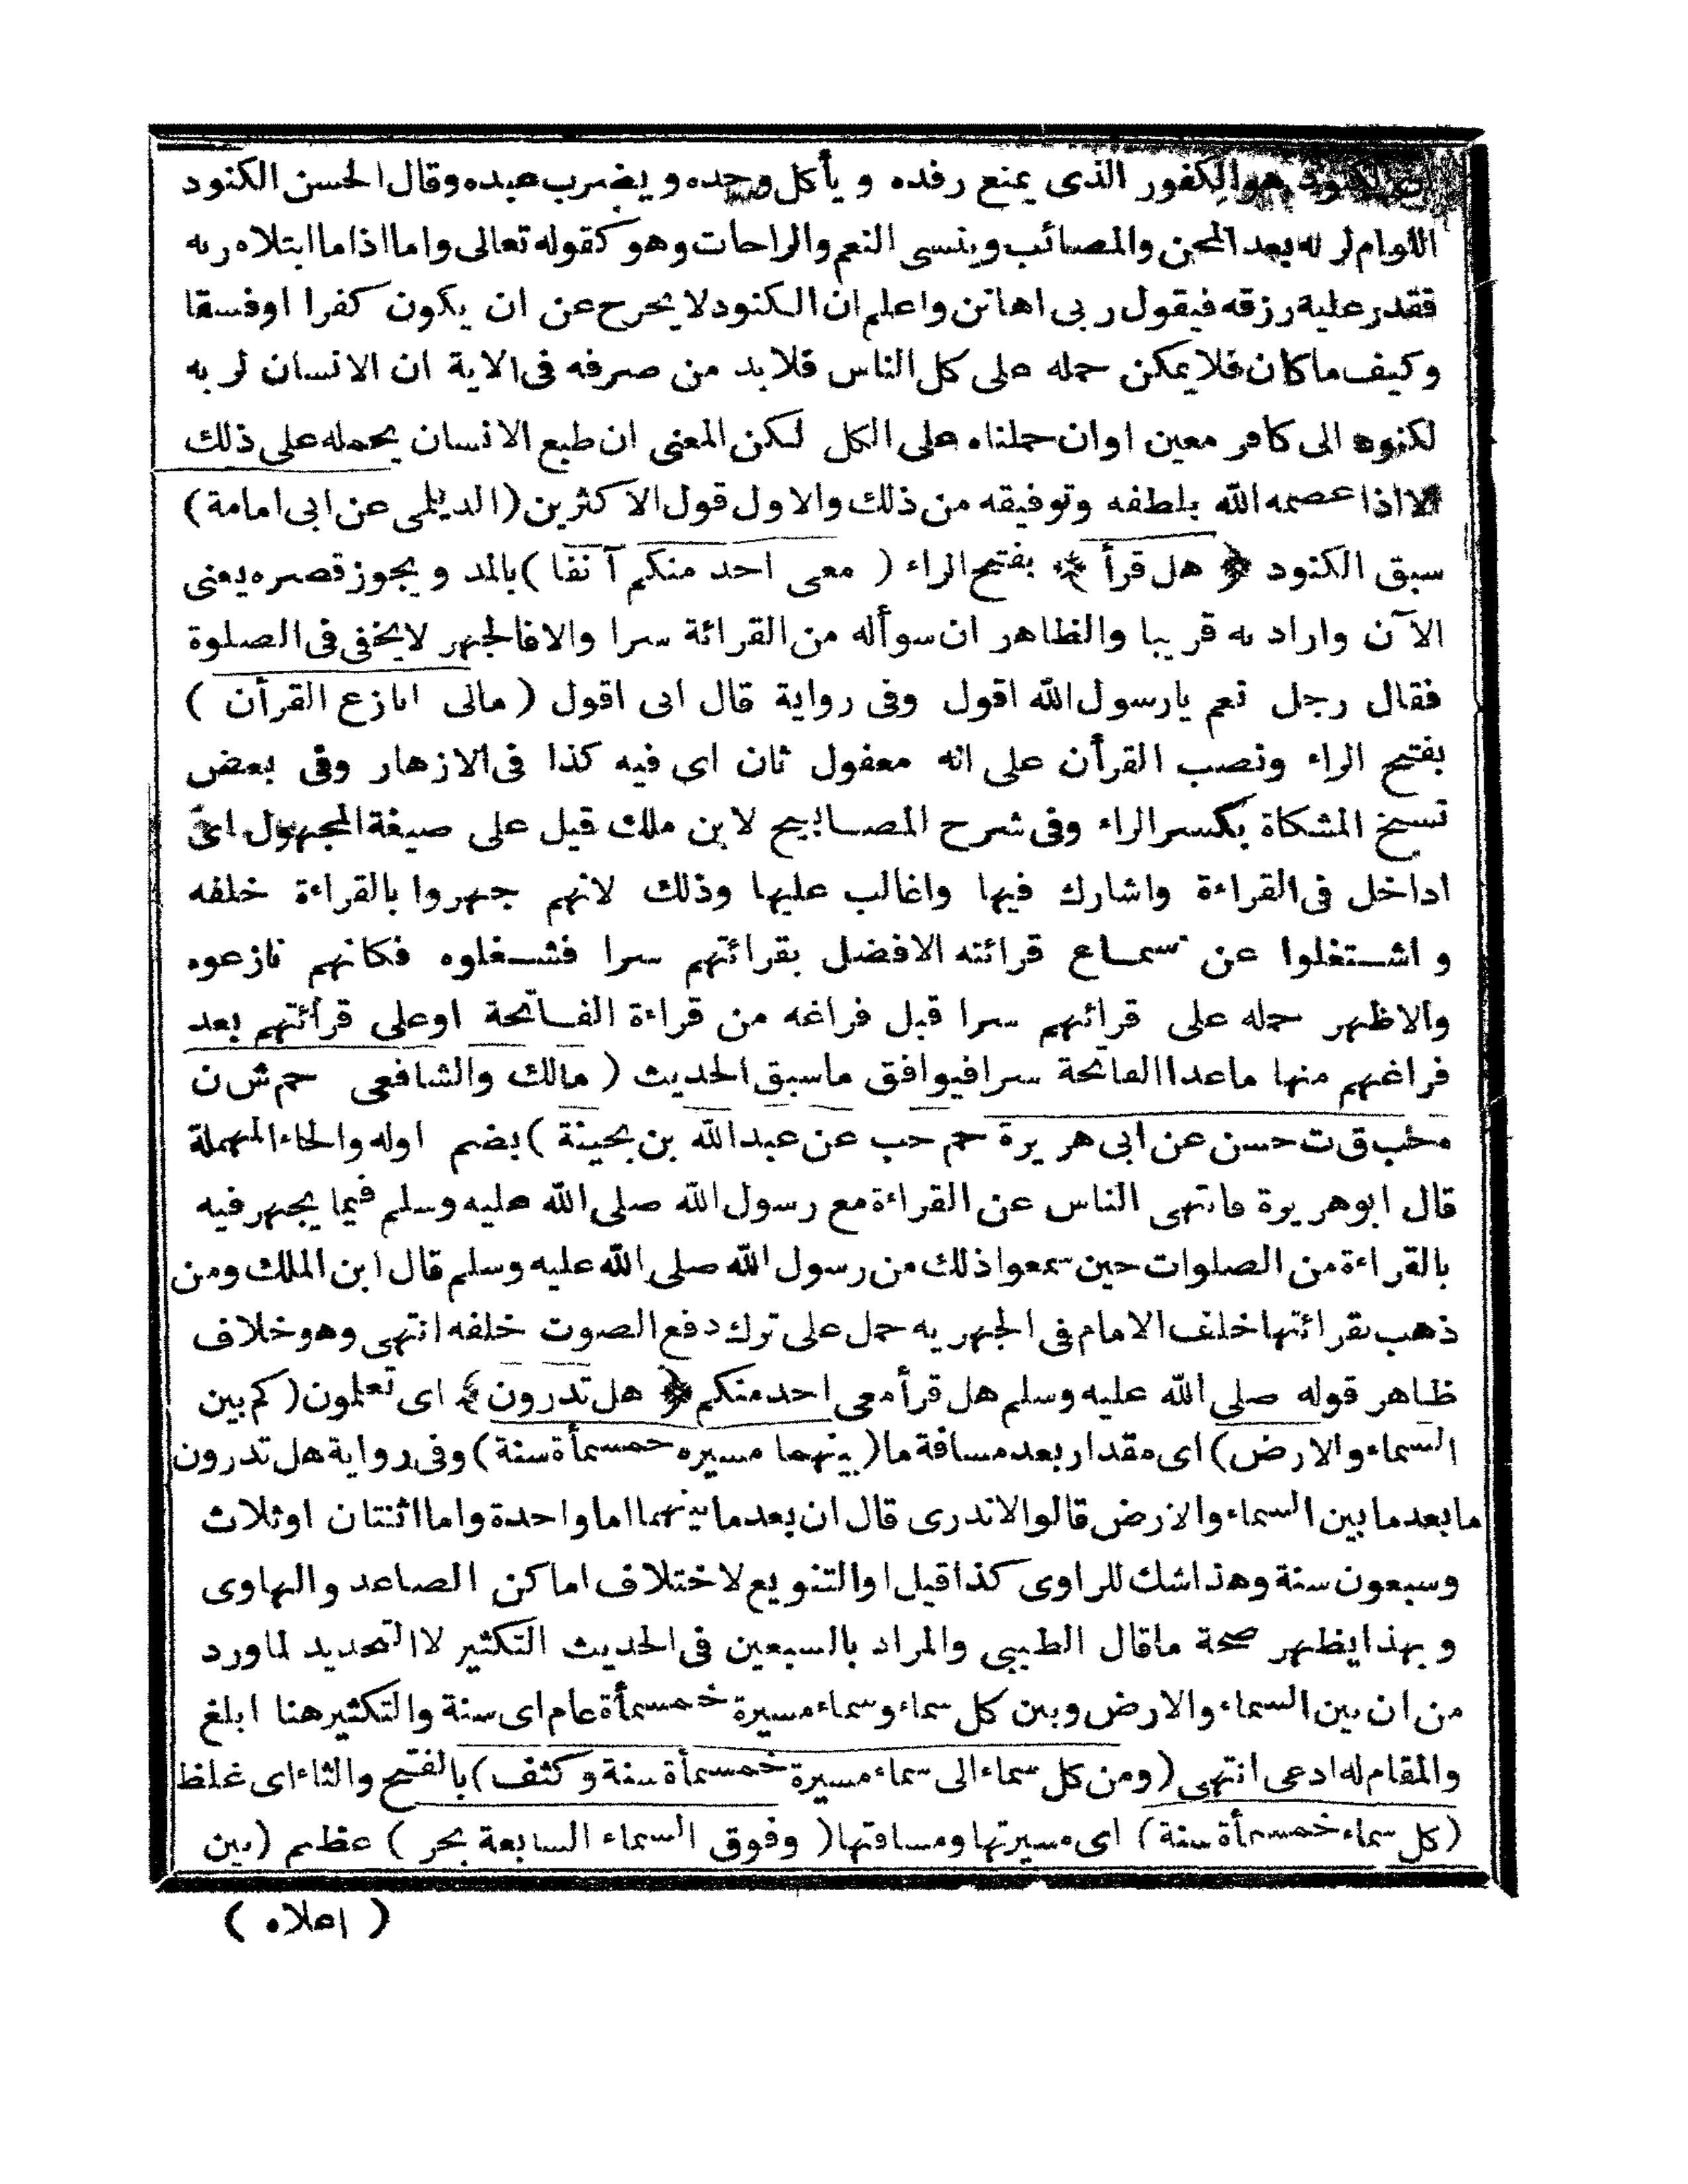 الكنود هو الكفور الذى يمنع رفده و يأكل وحده و يضرب عبده وقال الحسن الكنود
اللوام لربه يعد المحن والمصائب وينسى النعم والراحات وهو كقوله تعالى واما اذا ما ابتلاه ربه
فقدر عليه رزقه فيقول ربى اهانن واعلم ان الكنود لا يخرج عن ان يكون كفرا اوفسقا
وكيف ما كان فلا يمكن حمله على كل الناس فلابد من صرفه فى الاية ان الانسان لربه
لكنود الى كافر معين اوان حملناه على الكل لكن المعنى ان طبع الانسان يحمله على ذلك
الا اذا عصمه الله بلطفه وتوفيقه من ذلك والاول قول الاكثرين (الديلمى عن ابى امامة)
سبق الكنود ﴿ هل قرأ ﴾ بفتح الراء ( معى احد منكم آنفا ) بالمد و يجوز قصره يعنى
الآن واراد به قريبا والظاهر ان سوأله من القرائة سرا والافالجهر لايخفى فى الصلوة
فقال رجل نعم يارسول الله اقول وفى رواية قال انى اقول ( مالى انازع القرأن )
بفتح الراء ونصب القرأن على انه مفعول ثان اى فيه كذا فى الازهار وفى بعض
نسخ المشكاة بكسر الراء وفى شرح المصابيح لابن ملك قيل على صيغة المجهول اى
اداخل فى القراءة واشارك فيها واغالب عليها وذلك لانهم جهروا بالقراءة خلفه
و اشتغلوا عن سماع قرائته الافضل بقرائتهم سرا فشغلوه فكانهم نازعوه
والاظهر حمله على قرائتهم سرا قبل فراغه من قراءة الفاتحة اوعلى قرائتهم بعد
فراغهم منها ماعدا الفاتحة سرا فيوافق ماسبق الحديث ( مالك والشافعى حم ش ن
هحب ق ت حسن عن ابى هريرة حم حب عن عبدالله بن بحينة ) بضم اوله والحاء المهملة
قال ابوهريرة فانتهى الناس عن القراءة مع رسول الله صلى الله عليه وسلم فيما يجهر فيه
بالقراءة من الصلوات حين سمعوا ذلك من رسول الله صلى الله عليه وسلم قال ابن الملك ومن
ذهب بقرائتها خلف الامام فى الجهريه حمل على ترك دفع الصوت خلفه انتهى وهو خلاف
ظاهر قوله صلى الله عليه وسلم هل قرأ معى احد منكم ﴿ هل تدرون ﴾ اى تعلمون ( كم بين
السماء والارض ) اى مقدار بعد مسافة ما ( بينهما مسيره خمسمأة سنة ) وفى رواية هل تدرون
ما بعد ما بين السماء والارض قالوا لاندرى قال ان بعد ما بينهما اما واحدة واما اثنتان اوثلاث
وسبعون سنة وهذا شك للراوى كذا قيل اوالتنويع لاختلاف اماكن الصاعد والهاوى
و بهذا يظهر صحة ماقال الطيبى والمراد بالسبعين فى الحديث التكثير لا التحديد لما ورد
من ان بين السماء والارض وبين كل سماء وسماء مسيرة خمسمأة عام اى سنة والتكثير هنا ابلغ
والمقام له ادعى انتهى ( ومن كل سماء الى سماء مسيرة خمسمأة سنة وكثف ) بالفتح والثاء اى غلظ
( كل سماء خمسمأة سنة ) اى مسيرتها ومسافتها ( وفوق السماء السابعة بحر ) عظيم ( بين
( اعلاه )